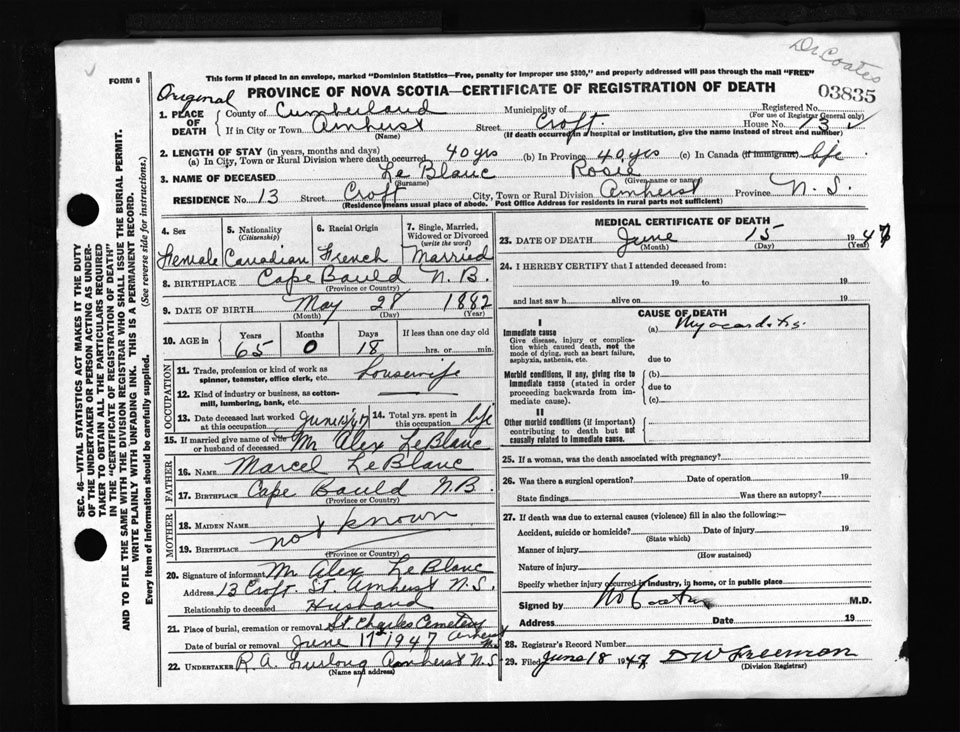 Dr Coates
FORM 6
This form if placed in an envelope, marked "Dominion Statistics—Free, penalty for improper use $300," and properly addressed will pass through the mail "FREE"
Original
PROVINCE OF NOVA SCOTIA—CERTIFICATE OF REGISTRATION OF DEATH
03835
1. PLACE OF DEATH
County of Cumberland Municipality of Registered No.
(For use of Registrar General only)
If in City or Town Amherst Street Croft House No. 13
(Name) (If death occurred in a hospital or institution, give the name instead of street and number)
2. LENGTH OF STAY (in years, months and days)
(a) In City, Town or Rural Division where death occurred 40 yrs (b) In Province 40 yrs (c) In Canada (if immigrant) life
3. NAME OF DECEASED Le Blanc Rosie
(Surname) (Given name or names)
RESIDENCE No. 13 Street Croft City, Town or Rural Division Amherst Province N. S.
(Residence means usual place of abode. Post Office Address for residents in rural parts not sufficient)
4. Sex 5. Nationality (Citizenship) 6. Racial Origin 7. Single, Married, Widowed or Divorced (write the word)
Female Canadian French Married
8. BIRTHPLACE Cape Bauld N. B.
(Province or Country)
9. DATE OF BIRTH May 28 1882
(Month) (Day) (Year)
10. AGE in Years Months Days If less than one day old
65 0 18 hrs. or min.
OCCUPATION
11. Trade, profession or kind of work as spinner, teamster, office clerk, etc. housewife
12. Kind of industry or business, as cotton-mill, lumbering, bank, etc. —
13. Date deceased last worked at this occupation June 15/47 14. Total yrs. spent in this occupation life
15. If married give name of wife or husband of deceased Mr Alex LeBlanc
FATHER
16. NAME Marcel LeBlanc
17. BIRTHPLACE Cape Bauld N.B.
(Province or Country)
MOTHER
18. MAIDEN NAME not known
19. BIRTHPLACE
(Province or Country)
20. Signature of informant Mr Alex LeBlanc
Address 13 Croft. St. Amherst N.S.
Relationship to deceased Husband
21. Place of burial, cremation or removal St Charles Cemetery
Date of burial or removal June 17 1947 Amherst
22. UNDERTAKER R. A. Furlong Amherst N.S.
(Name and address)
MEDICAL CERTIFICATE OF DEATH
23. DATE OF DEATH June 15 1947
(Month) (Day) (Year)
24. I HEREBY CERTIFY that I attended deceased from:
19 to 19
and last saw h alive on 19
CAUSE OF DEATH
I
Immediate cause (a) Myocarditis
Give disease, injury or complication which caused death, not the mode of dying, such as heart failure, asphyxia, asthenia, etc.
due to
Morbid conditions, if any, giving rise to immediate cause (stated in order proceeding backwards from immediate cause).
(b)
due to
(c)
II
Other morbid conditions (if important) contributing to death but not causally related to immediate cause.
25. If a woman, was the death associated with pregnancy?
26. Was there a surgical operation? Date of operation 19
State findings Was there an autopsy?
27. If death was due to external causes (violence) fill in also the following:—
Accident, suicide or homicide? Date of injury 19
(State which)
Manner of injury
(How sustained)
Nature of injury
Specify whether injury occurred in industry, in home, or in public place
Signed by M.D.
Address Date 19
28. Registrar's Record Number
29. Filed June 18 1947 D W Freeman
(Division Registrar)
SEC. 46—VITAL STATISTICS ACT MAKES IT THE DUTY
OF THE UNDERTAKER OR PERSON ACTING AS UNDER-
TAKER TO OBTAIN ALL THE PARTICULARS REQUIRED
IN THE "CERTIFICATE OF REGISTRATION OF DEATH"
AND TO FILE THE SAME WITH THE DIVISION REGISTRAR WHO SHALL ISSUE THE BURIAL PERMIT.
WRITE PLAINLY WITH UNFADING INK. THIS IS A PERMANENT RECORD.
Every item of information should be carefully supplied. (See reverse side for instructions.)